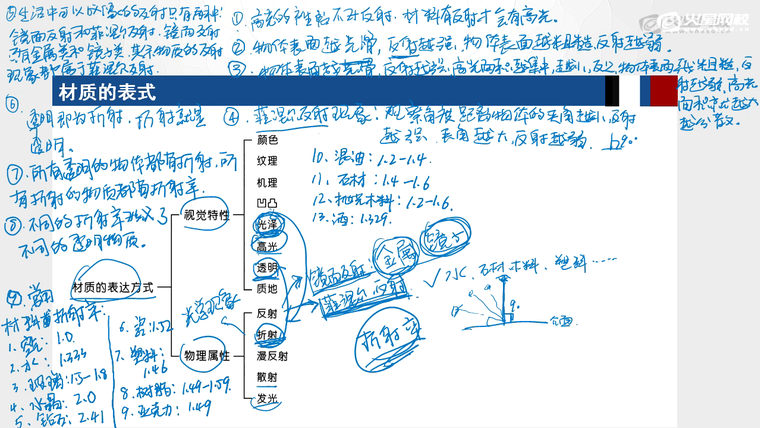 ⑤生活中可以的
镜面反射和菲涅尔反射. 镜面反射
只有金属类和镜子类, 其余物质的反射
现象都属于菲涅尔反射.
①
材料有反射才会有高光.
②物体表面越光滑, 反射越强, 物体表面越粗糙, 反射越弱.
③物体表面越光滑, 反射越强, 高光面积越集中, 越小, 反之, 物体表面越粗糙, 反
射越弱, 高光
面积就越大
越分散.
火星网校
材质的表式
⑥透明即为折射, 折射就是
透明.
④菲涅尔反射现象: 观察角度距离物体的夹角越小, 反射
越强, 夹角越大, 反射越弱. 90°
⑦所有透明的物体都有折射, 所
有折射的物质都有折射率.
⑧不同的折射率
不同的透明物质.
材质的表达方式
视觉特性
物理属性
颜色
纹理
机理
凹凸
光泽
高光
透明
质地
反射
折射
漫反射
散射
发光
光学现象
10、混油: 1.2-1.4.
11、石材: 1.4-1.6
12、抛光木料: 1.2-1.6.
13、酒: 1.329.
镜面反射: 金属 镜子
菲涅尔反射:
✓水、石材、木料、塑料……
折射率
9°
⑨常用
材料的折射率:
1、空气: 1.0
2、水: 1.333
3、玻璃: 1.5-1.8
4、水晶: 2.0
5、钻石: 2.41
6、瓷: 1.52
7、塑料:
1.46
8、树脂: 1.49-1.59.
9、亚克力: 1.49